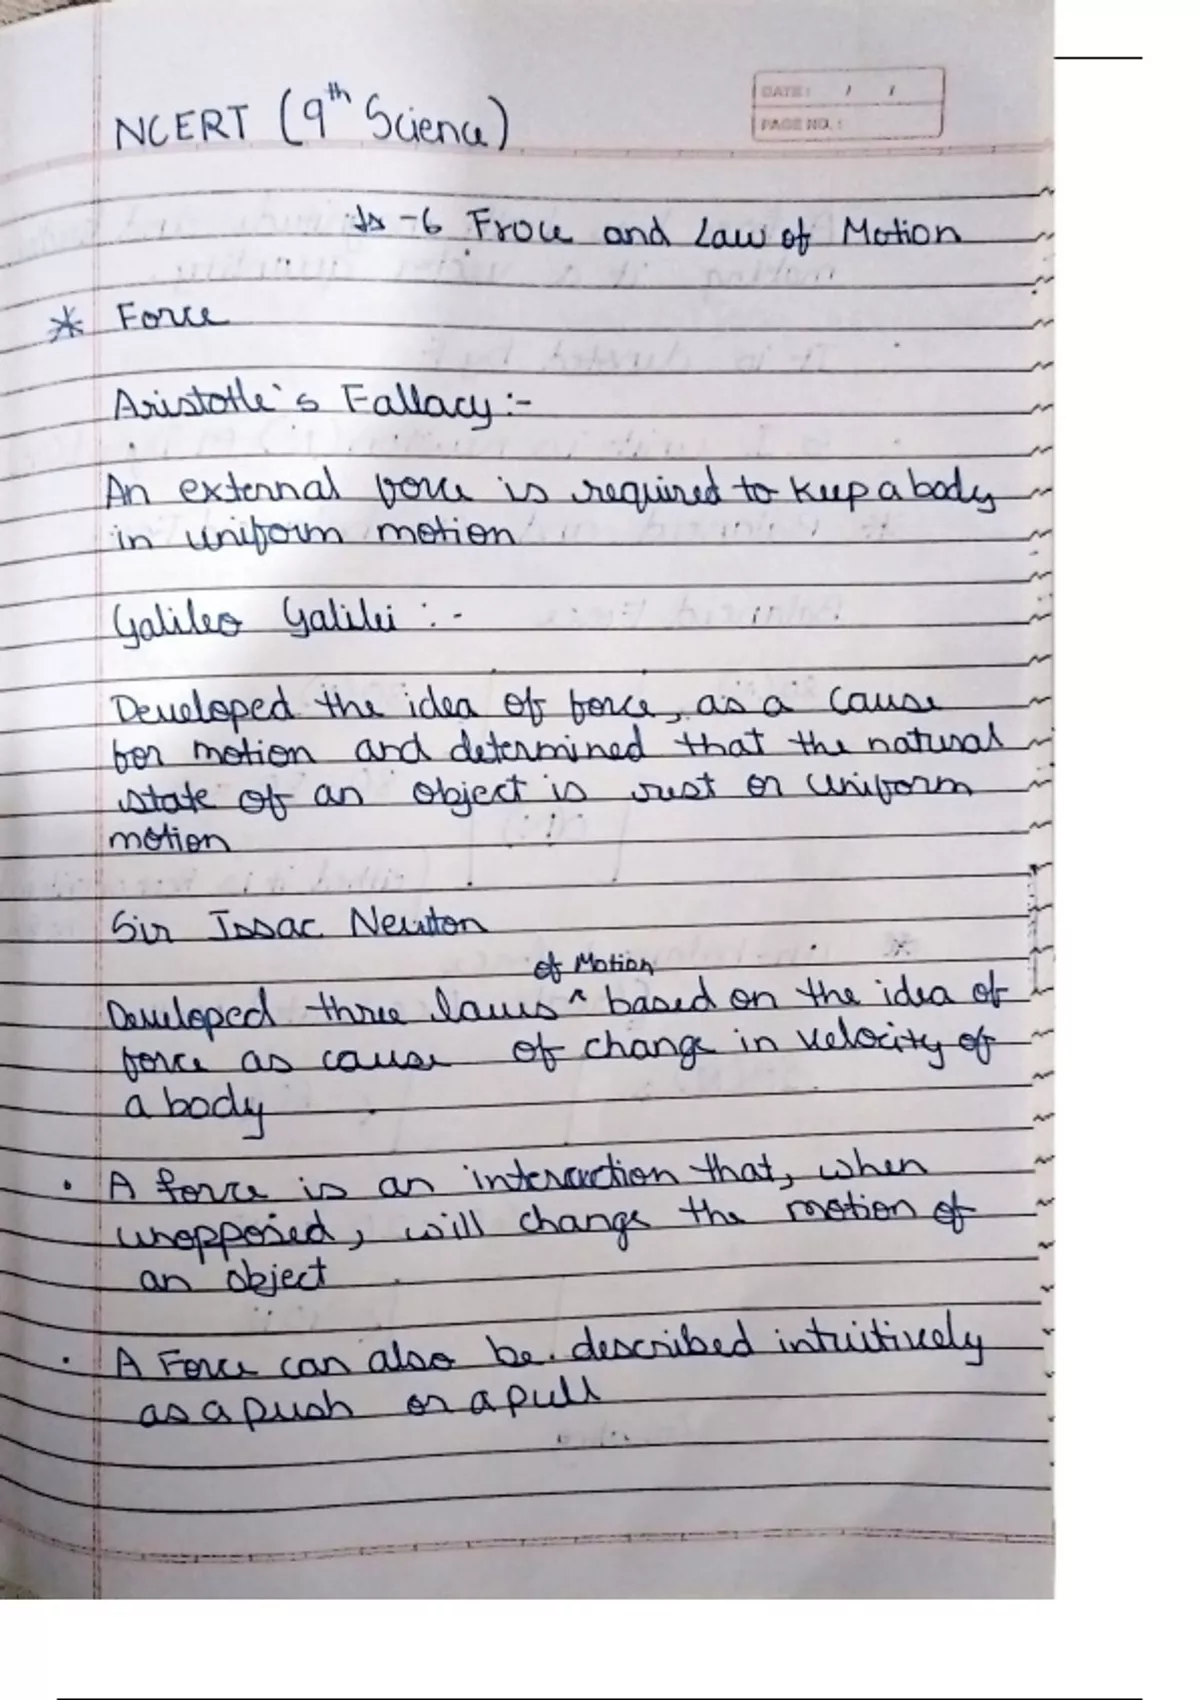 NCERT (9th Science)
DATE: / /
PAGE NO.:
-6 Froce and Law of Motion
* Force
Aristotle's Fallacy :-
An external force is required to keep a body
in uniform motion
Galileo Galilei :-
Developed the idea of force, as a cause
for motion and determined that the natural
state of an object is rest or uniform
motion
Sir Issac Newton
of Motion
Developed three laws ^ based on the idea of
force as cause of change in velocity of
a body
• A force is an interaction that, when
unopposed, will change the motion of
an object
• A Force can also be described intuitively
as a push or a pull